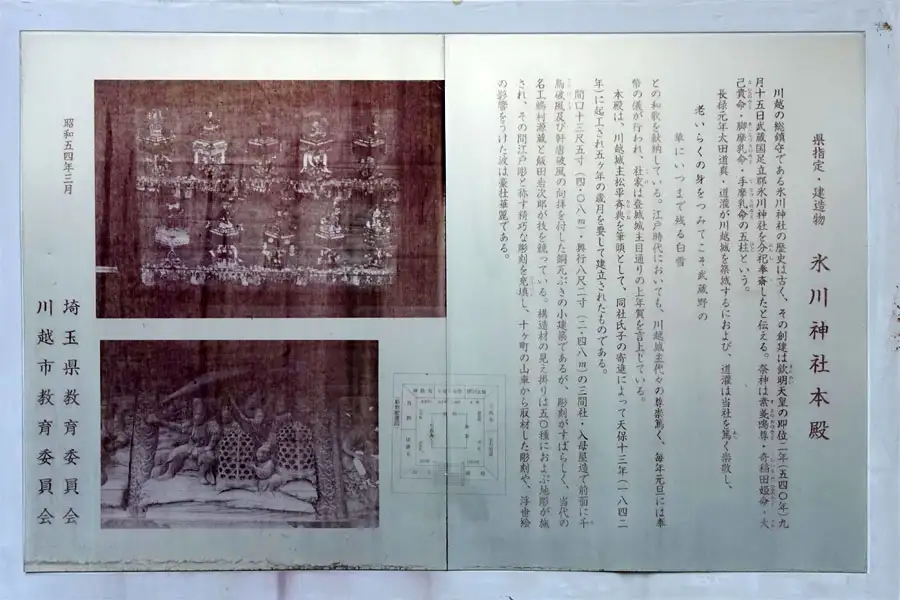 県指定・建造物　氷川神社本殿
川越の総鎮守である氷川神社の歴史は古く、その創建は欽明天皇の即位二年（五四〇年）九
月十五日武蔵国足立郡氷川神社を分祀奉斎したと伝える。祭神は素戔嗚尊・奇稲田姫命・大
己貴命・脚摩乳命・手摩乳命の五柱という。
長禄元年太田道真・道灌が川越城を築城するにおよび、道灌は当社を篤く崇敬し、
老いらくの身をつみてこそ武蔵野の
草にいつまで残る白雪
との和歌を献納している。江戸時代においても、川越城主代々の尊崇篤く、毎年元旦には奉
幣の儀が行われ、社家は登城城主目通りの上年賀を言上している。
本殿は、川越城主松平斉典を筆頭として、同社氏子の寄進によって天保十三年（一八四二
年）に起工され五ヶ年の歳月を要して建立されたものである。
間口十三尺五寸（四・〇八m）・奥行八尺二寸（二・四八m）の三間社・入母屋造で前面に千
鳥破風及び軒唐破風の向拝を付した銅瓦ぶきの小建築であるが、彫刻がすばらしく、当代の
名工嶋村源蔵と飯田岩次郎が技を競っている。構造材の見え掛りは五〇種におよぶ地彫が施
され、その間江戸彫と称す精巧な彫刻を充填し、十ヶ町の山車から取材した彫刻や、浮世絵
の影響をうけた波は豪壮華麗である。
昭和五四年三月
埼玉県教育委員会
川越市教育委員会